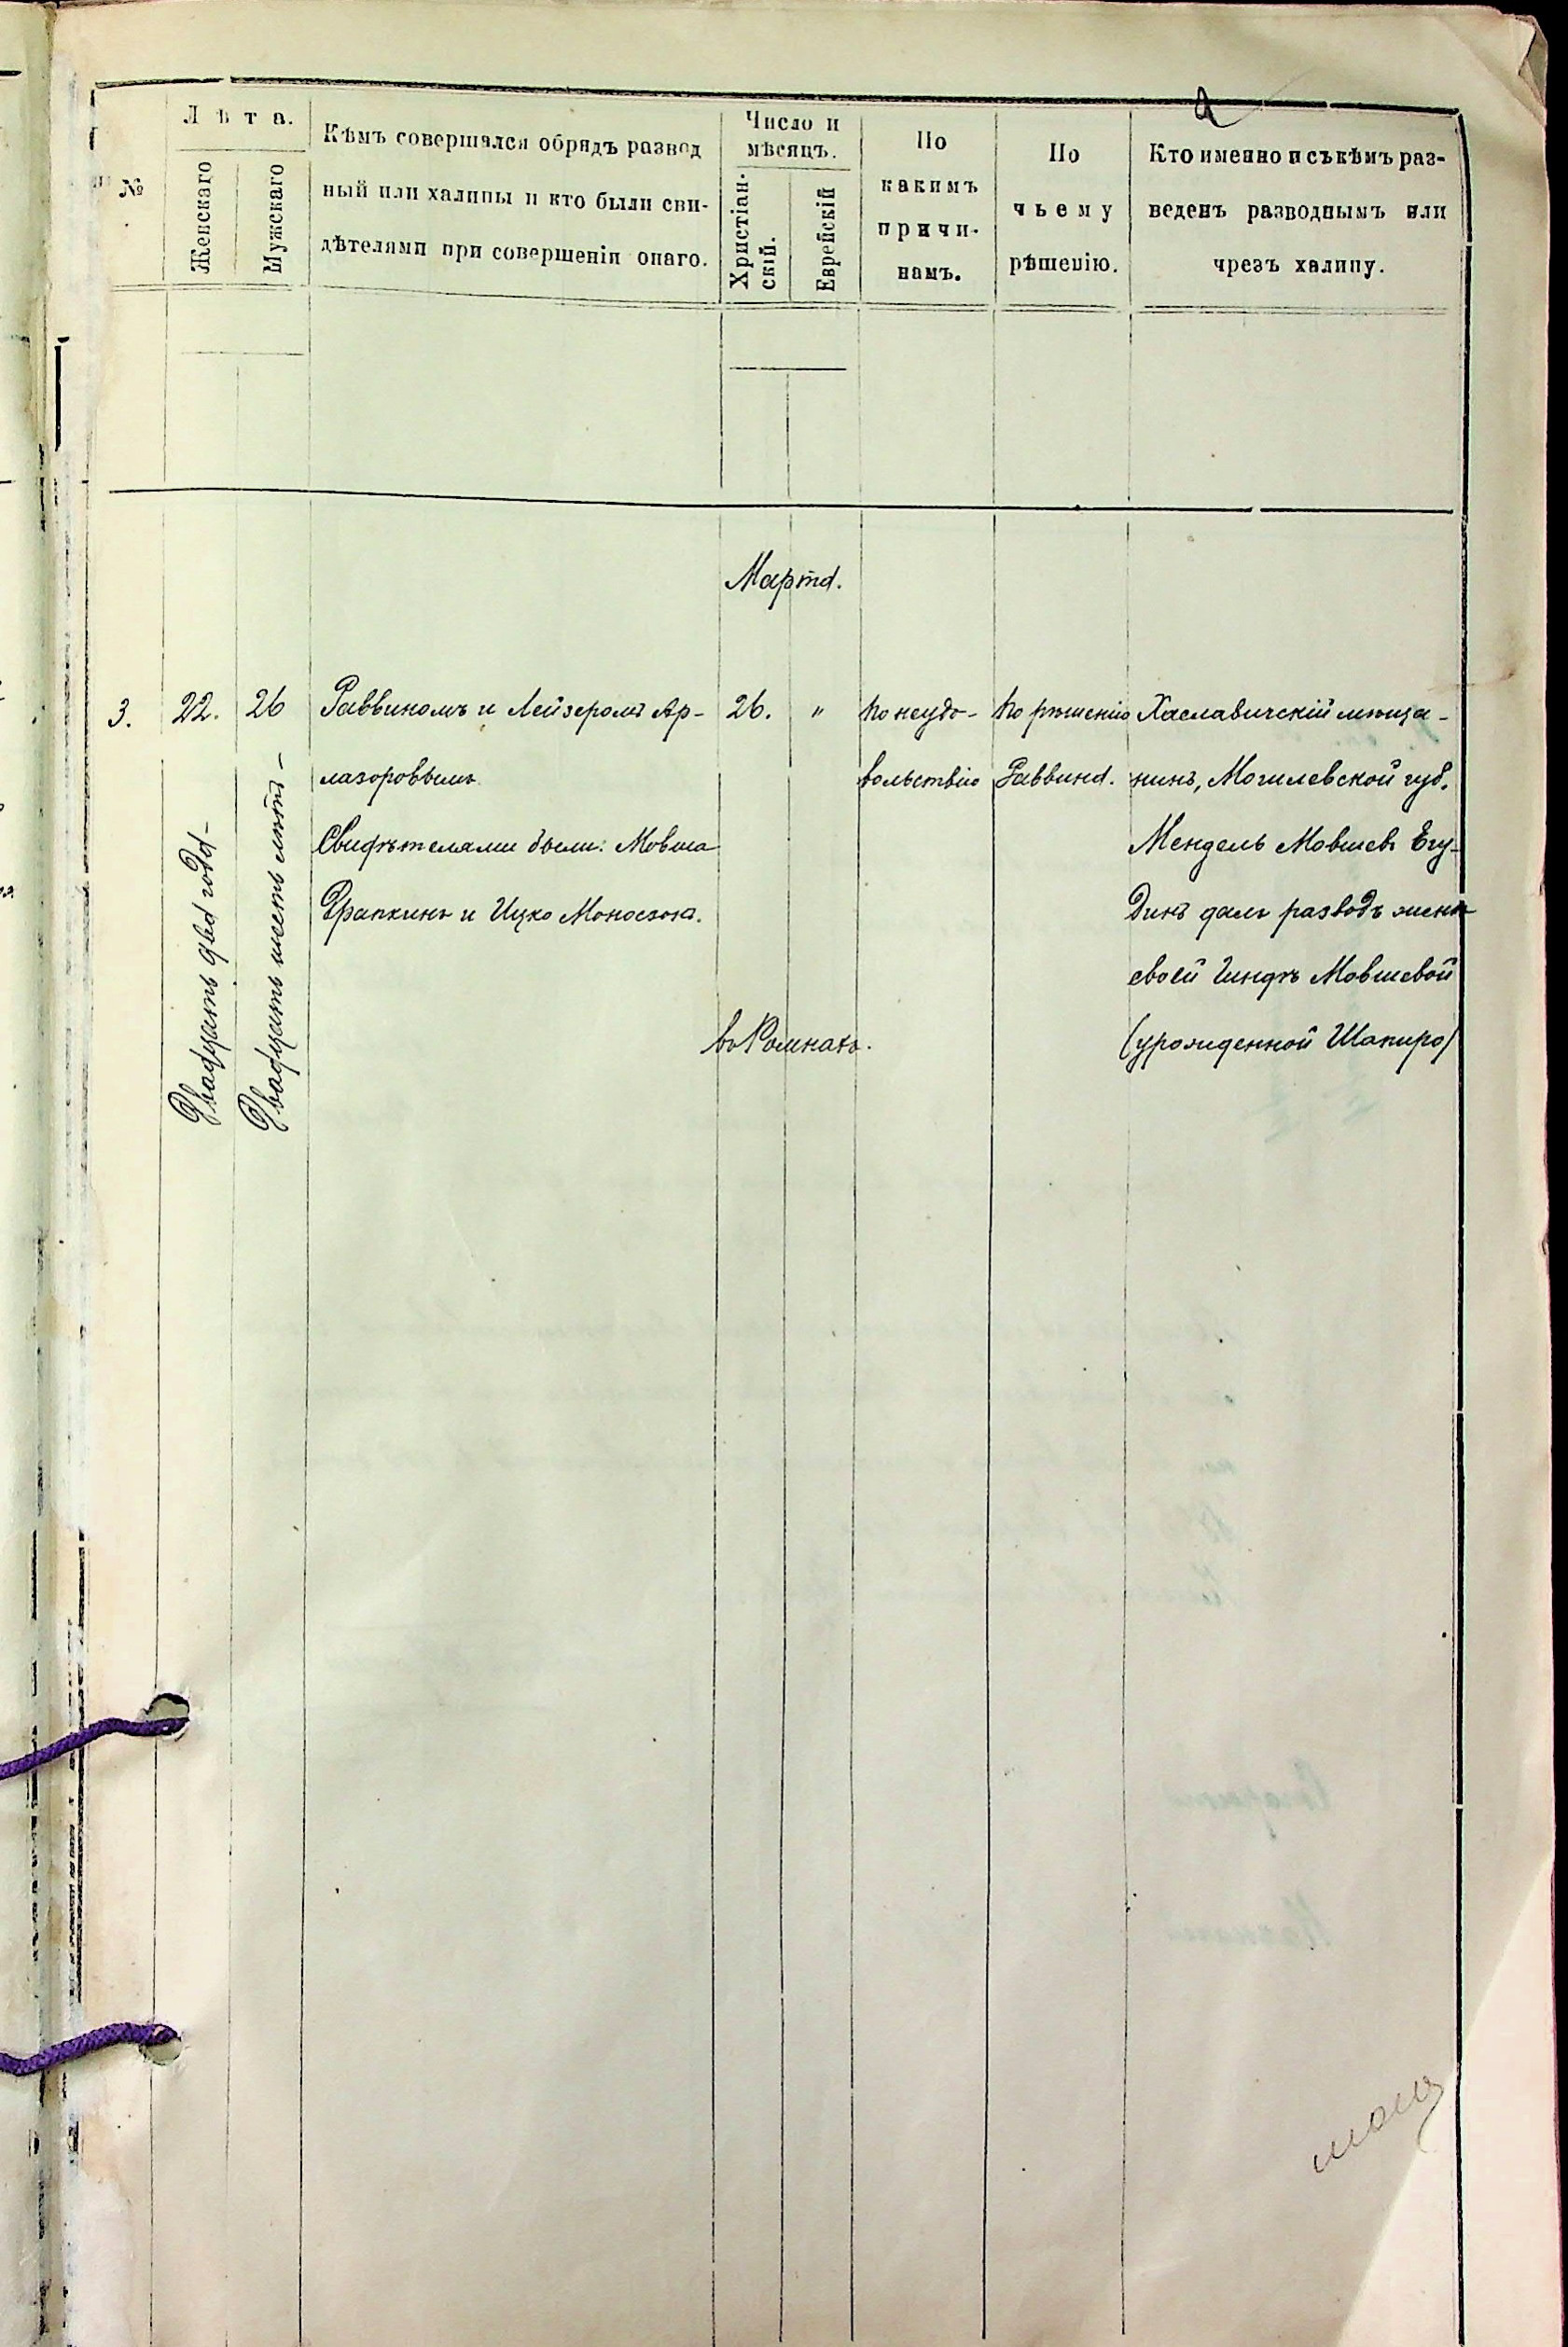 №
Лѣта.
Женскаго
Мужскаго
Кѣмъ совершался обрядъ развод
ный или халицы и кто были сви-
дѣтелями при совершеніи онаго.
Число и
мѣсяцъ.
Христіан-
скій.
Еврейскій
По
какимъ
причи-
намъ.
По
чьему
рѣшенію.
Кто именно и съ кѣмъ раз-
веденъ разводнымъ или
чрезъ халицу.
Марта.
3.
22.
Двадцать два года -
26
Двадцать шесть лѣтъ -
Раввиномъ и Лейзеромъ Ар-
лазоровымъ
Свидѣтелями были: Мовша
Фрапкинъ и Ицко Моносзон.
26.
"
въ Ромнахъ.
По неудо-
вольствію
По рѣшенію
Раввина.
Хаславичскій мѣща-
нинъ, Могилевской губ.
Мендель Мовшевъ Егу-
динъ далъ разводъ женѣ
своей Гиндѣ Мовшевой
(урожденной Шапиро)